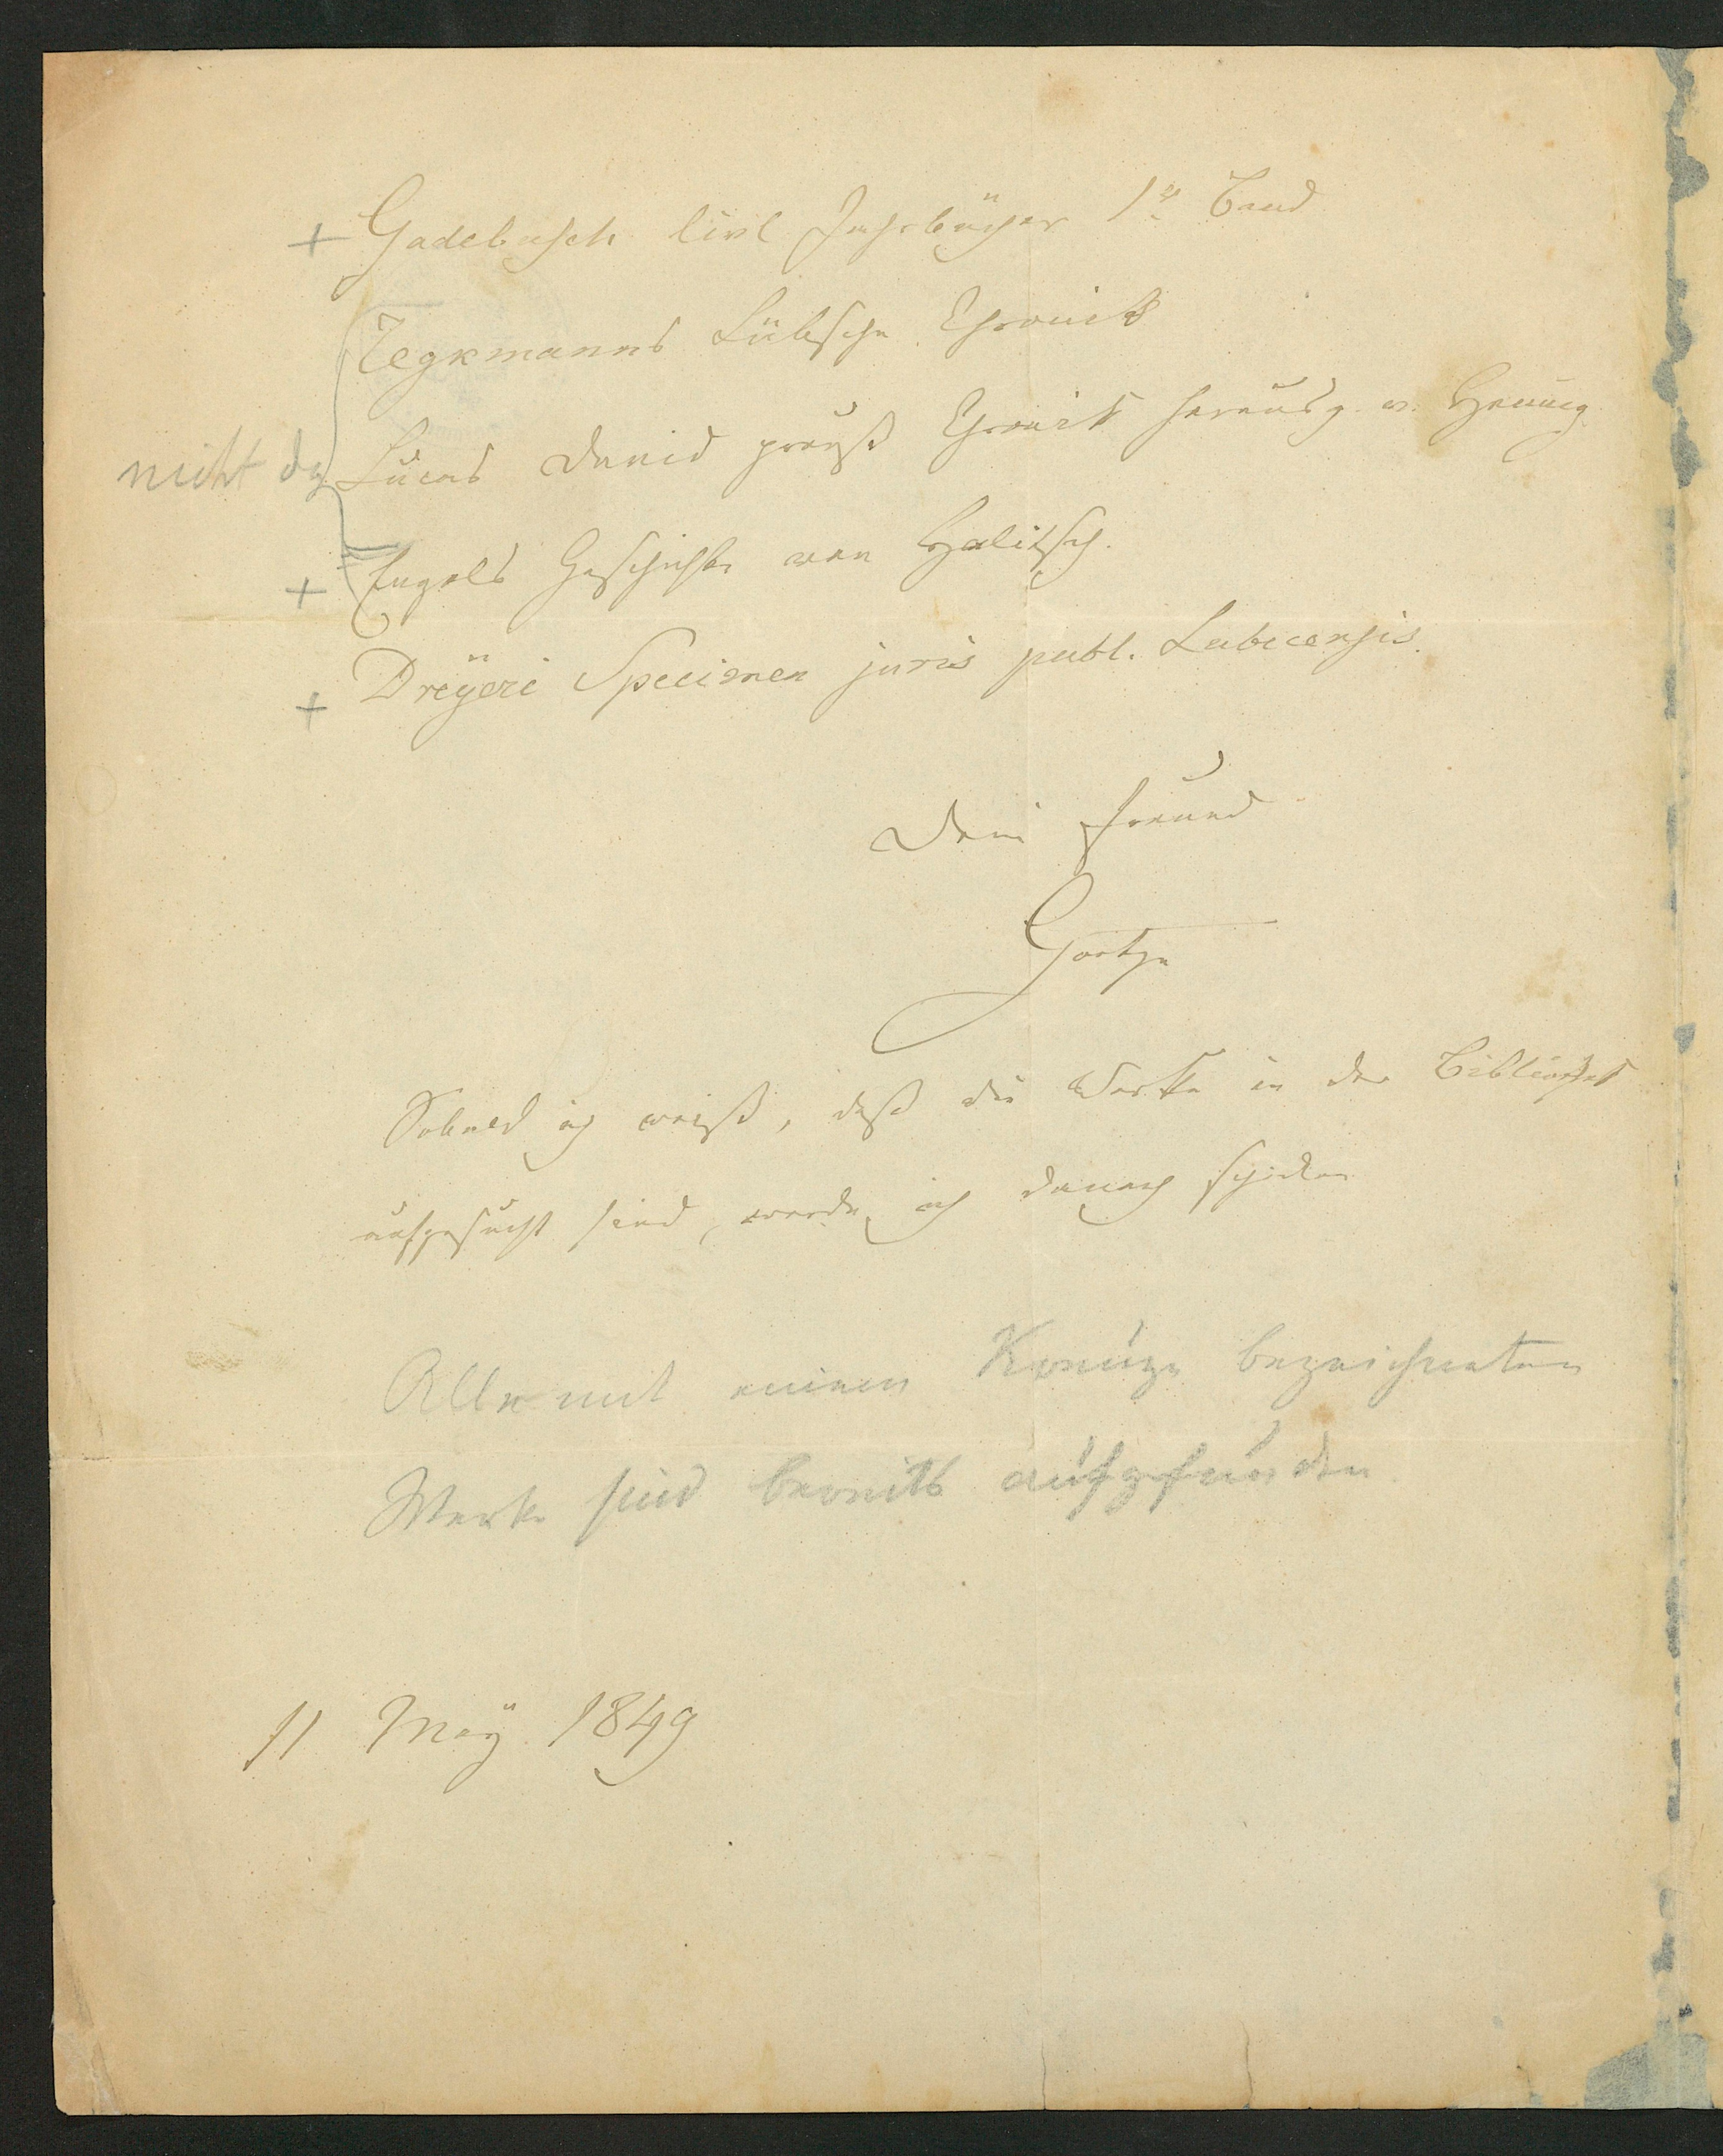 + Gadebusch livl Jahrbücher 1r Band
Regkmanns Lübsche Chronik
nicht da Lucas David preuß Chronik herausg. v. Hennig
+ Engels Geschichte von Halitsch.
+ Dreÿeri Specimen juris publ. Lubecensis.
Dein Freund
Goetze
Sobald ich weiß, daß die Werke in der Bibliothek
aufgesucht sind, werde ich danach schicken
Alle mit einem Kreuze bezeichneten
Werke sind bereits aufgefunden
11 Maÿ 1849